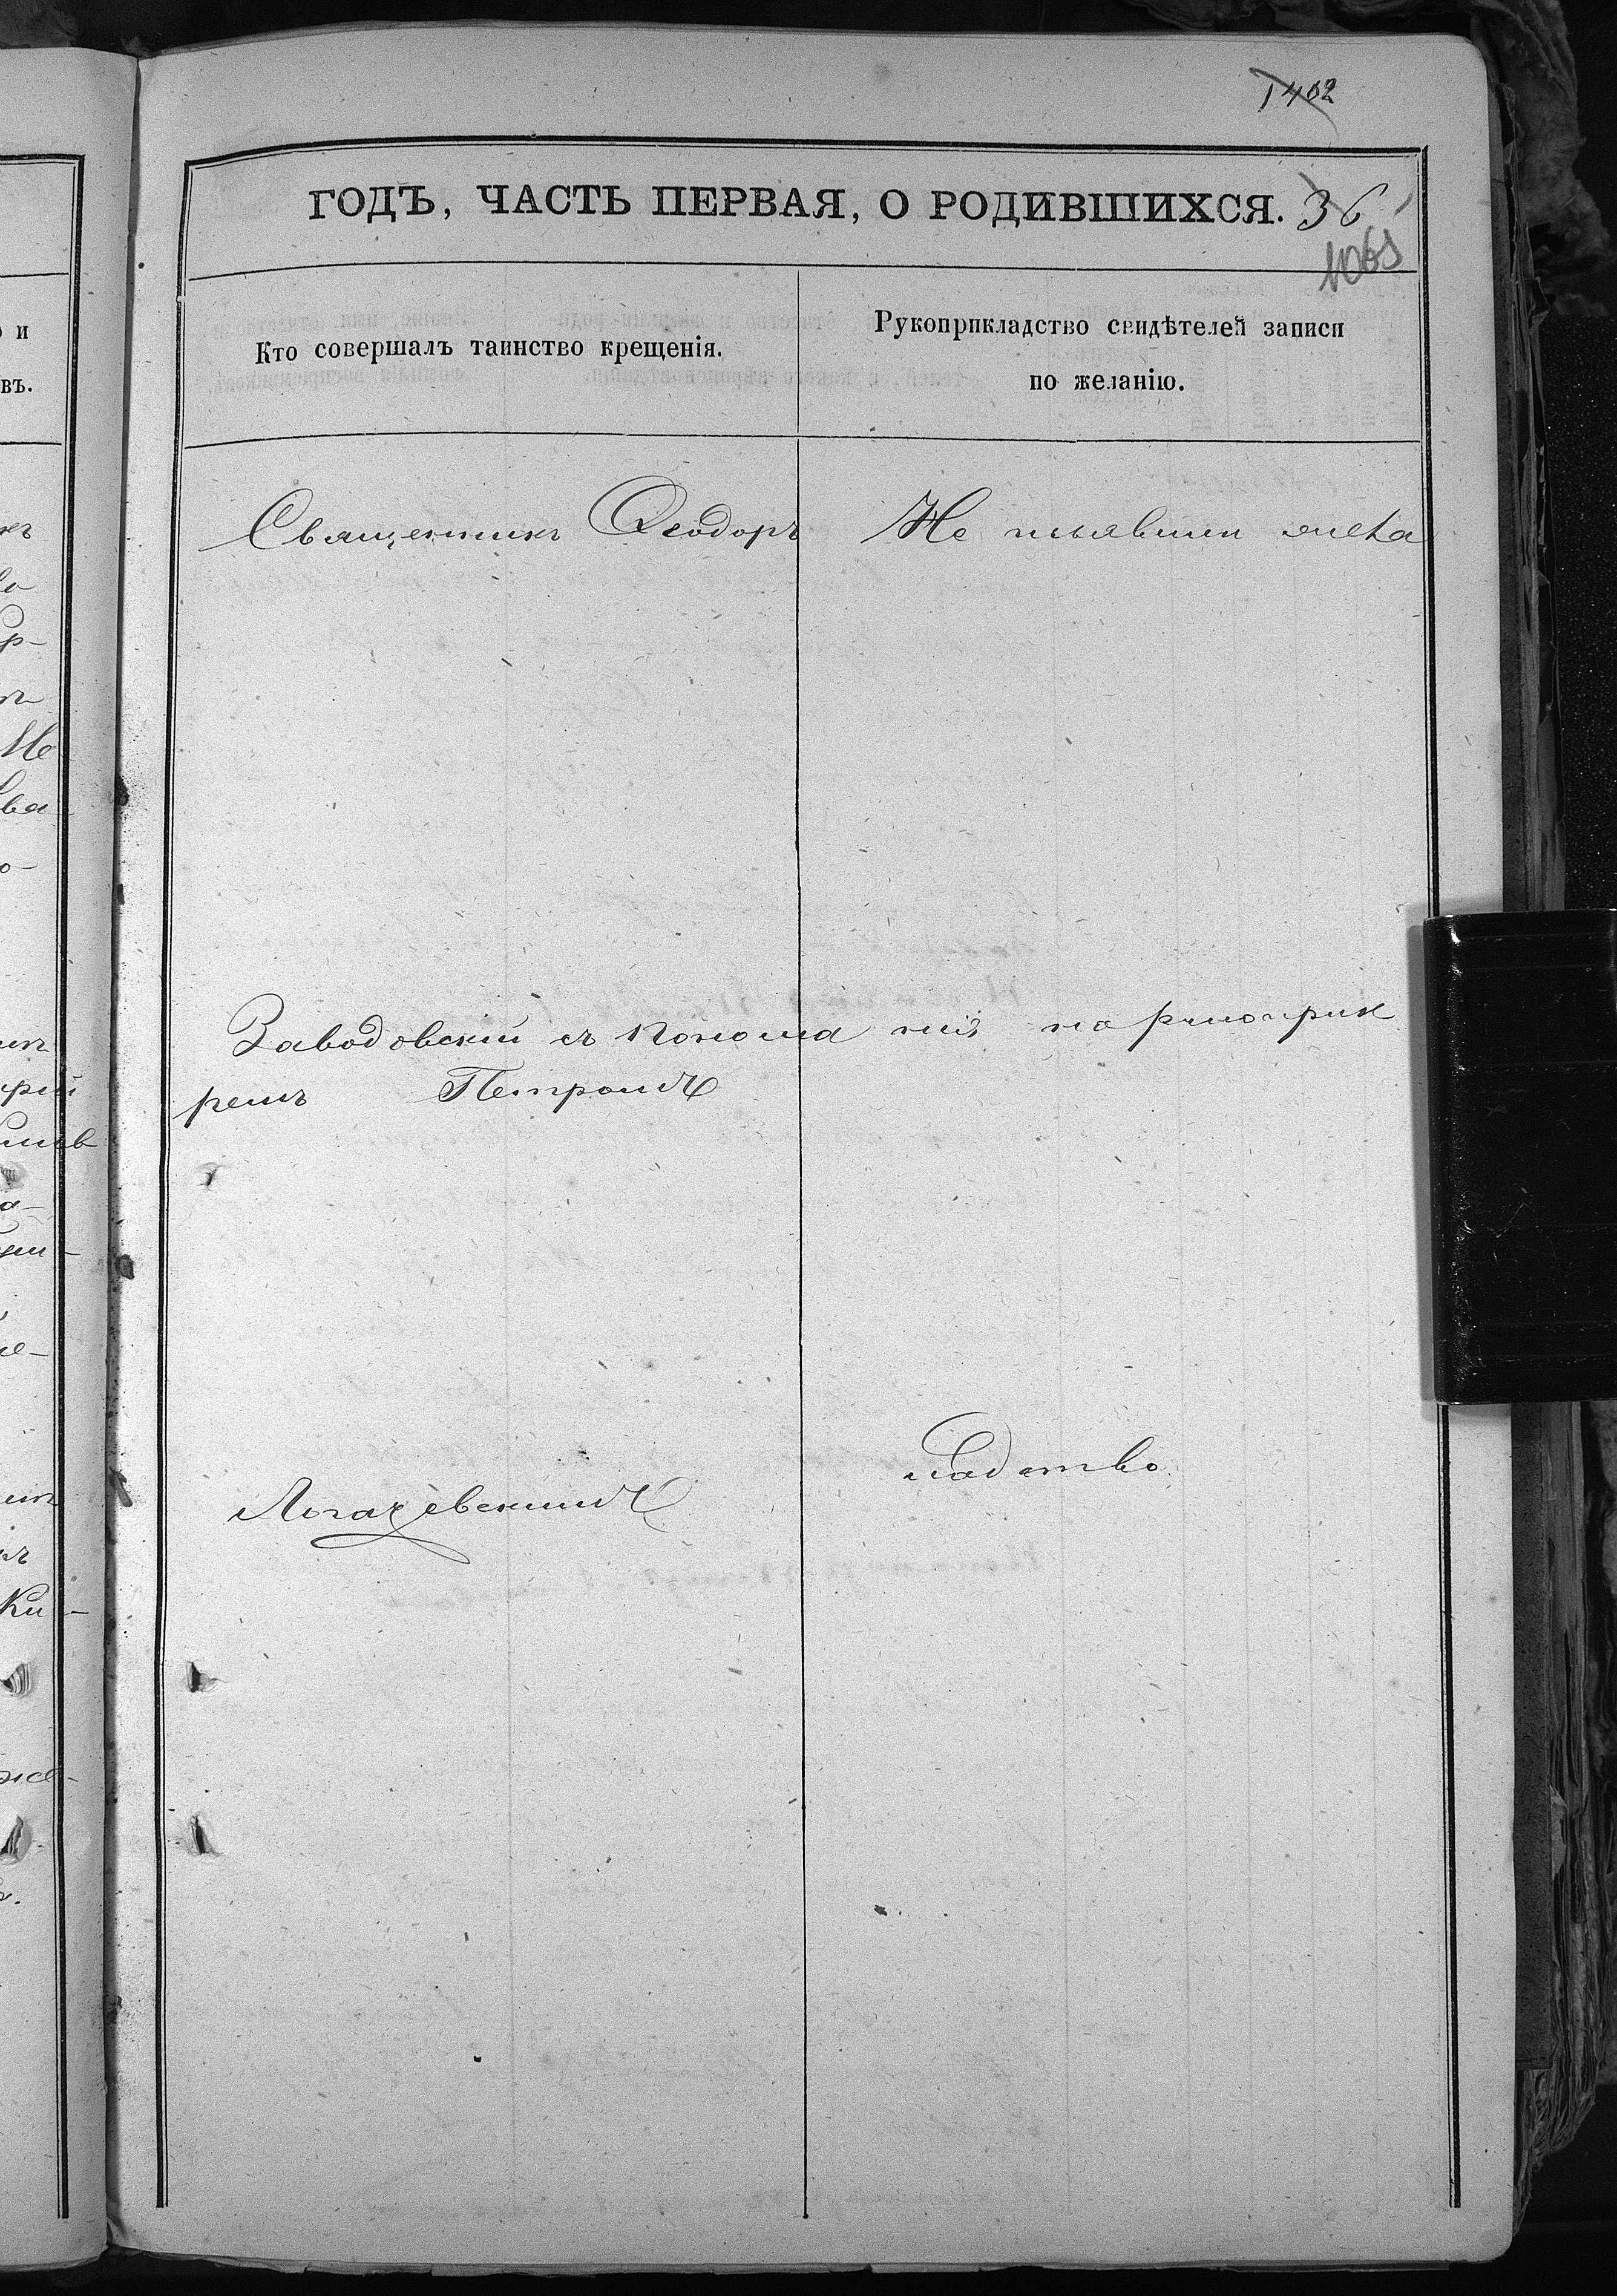 1402
ГОДЪ, ЧАСТЬ ПЕРВАЯ, О РОДИВШИХСЯ. 36
1069
Кто совершалъ таинство крещенія.
Рукоприкладство свидѣтелей записи
по желанію.
Священникъ Ѳеодоръ
Заводовскій съ понома
ремъ Петромъ
Не изъявили жела
нія на рукоприк
ладство.
и
въ.